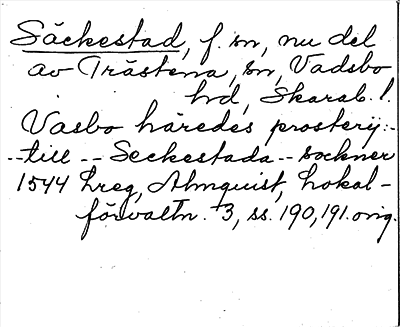 Säckestad, f. sn, nu del
av Trästena, sn, Vadsbo
hd, Skarab. l.
Vasbo häredes prosterij:-
--till -- Seckestada -- sockner
1544 Lreg, Almquist, Lokal-
förvaltn. 3, ss. 190, 191. orig.